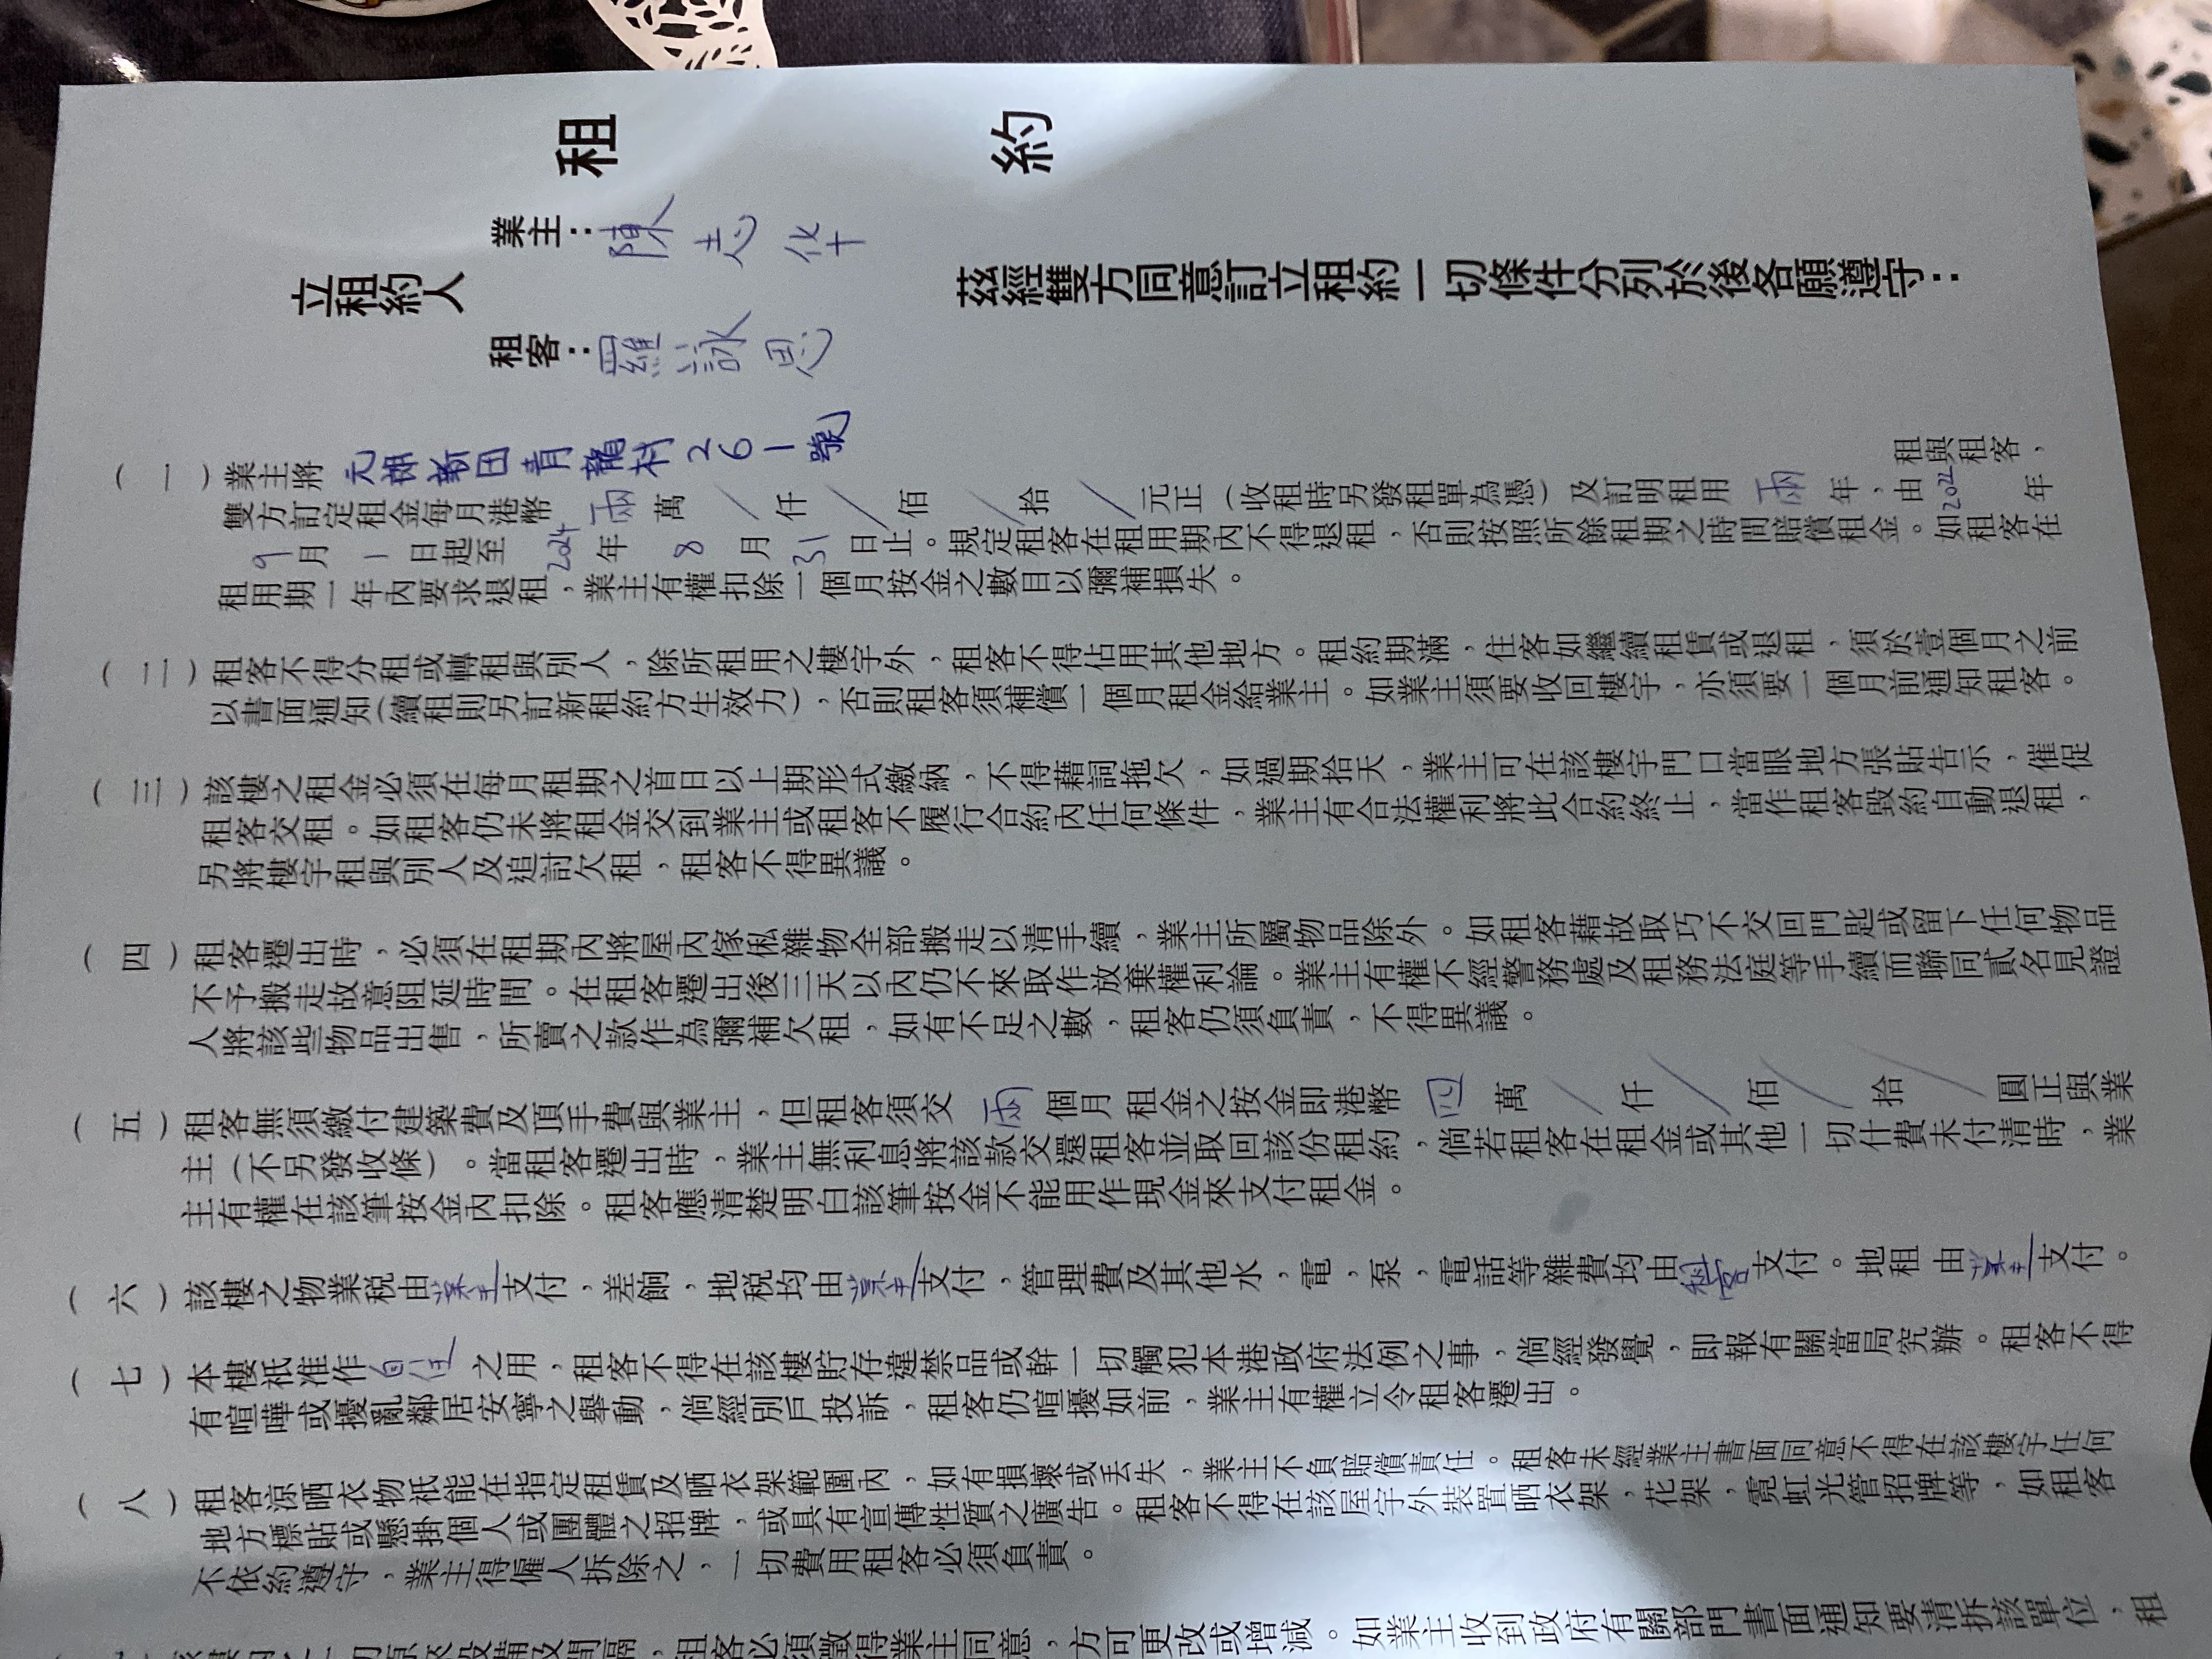 租 約
業主：陳志华
立租約人 茲經雙方同意訂立租約一切條件分列於後各願遵守：
租客：羅詠思
（一）業主將 元朗新田青龍村261號 租與租客，
雙方訂定租金每月港幣 兩 萬 / 仟 / 佰 / 拾 / 元正（收租時另發租單為憑）及訂明租用 兩 年，由 2022 年
9 月 1 日起至 2024 年 8 月 31 日止。規定租客在租用期內不得退租，否則按照所餘租期之時間賠賞租金。如租客在
租用期一年內要求退租，業主有權扣除一個月按金之數目以彌補損失。
（二）租客不得分租或轉租與別人，除所租用之樓宇外，租客不得佔用其他地方。租約期滿，住客如繼續租賃或退租，須於壹個月之前
以書面通知(續租則另訂新租約方生效力)，否則租客須補償一個月租金給業主。如業主須要收回樓宇，亦須要一個月前通知租客。
（三）該樓之租金必須在每月租期之首日以上期形式繳納，不得藉詞拖欠，如過期拾天，業主可在該樓宇門口當眼地方張貼告示，催促
租客交租。如租客仍未將租金交到業主或租客不履行合約內任何條件，業主有合法權利將此合約終止，當作租客毀約自動退租，
另將樓宇租與別人及追討欠租，租客不得異議。
（四）租客遷出時，必須在租期內將屋內傢俬雜物全部搬走以清手續，業主所屬物品除外。如租客藉故取巧不交回門匙或留下任何物品
不予搬走故意阻延時間。在租客遷出後三天以內仍不來取作放棄權利論。業主有權不經警務處及租務法庭等手續而聯同貳名見證
人將該些物品出售，所賣之款作為彌補欠租，如有不足之數，租客仍須負責，不得異議。
（五）租客無須繳付建築費及頂手費與業主，但租客須交 兩 個月 租金之按金即港幣 四 萬 / 仟 / 佰 / 拾 / 圓正與業
主（不另發收條）。當租客遷出時，業主無利息將該款交還租客並取回該份租約，倘若租客在租金或其他一切什費未付清時，業
主有權在該筆按金內扣除。租客應清楚明白該筆按金不能用作現金來支付租金。
（六）該樓之物業税由業主支付，差餉，地税均由業主支付，管理費及其他水，電，泵，電話等雜費均由租客支付。地租 由業主支付。
（七）本樓祇准作自住之用，租客不得在該樓貯存違禁品或幹一切觸犯本港政府法例之事，倘經發覺，即報有關當局究辦。租客不得
有喧嘩或擾亂鄰居安寧之舉動，倘經別戶投訴，租客仍喧擾如前，業主有權立令租客遷出。
（八）租客涼晒衣物祇能在指定租賃及晒衣架範圍內，如有損壞或丟失，業主不負賠償責任。租客未經業主書面同意不得在該樓宇任何
地方標貼或懸掛個人或團體之招牌，或具有宣傳性質之廣告。租客不得在該屋宇外裝置晒衣架，花架，霓虹光管招牌等，如租客
不依約遵守，業主得僱人拆除之，一切費用租客必須負責。
一切原來設備及間隔，租客必須徵得業主同意，方可更改或增減。如業主收到政府有關部門書面通知要清拆該單位，租